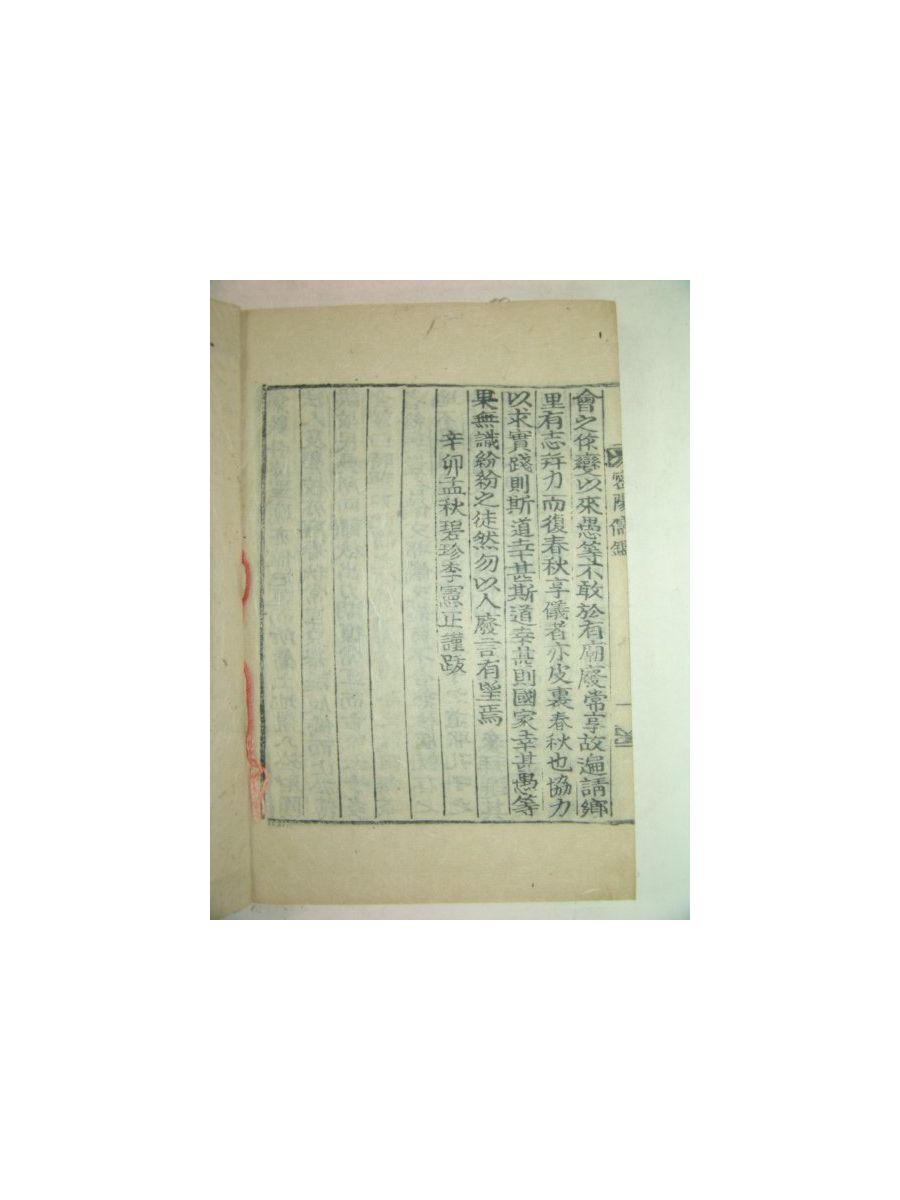 會之作變以來愚等不敢於有廟廢常享故遍請鄉
里有志并力而復春秋享儀者亦皮裏春秋也協力
以求實踐則斯道幸甚斯道幸甚則國家幸甚愚等
果無識紛紛之徒然勿以人廢言有望焉
辛卯孟秋碧珍李憲正謹跋
密陽儒